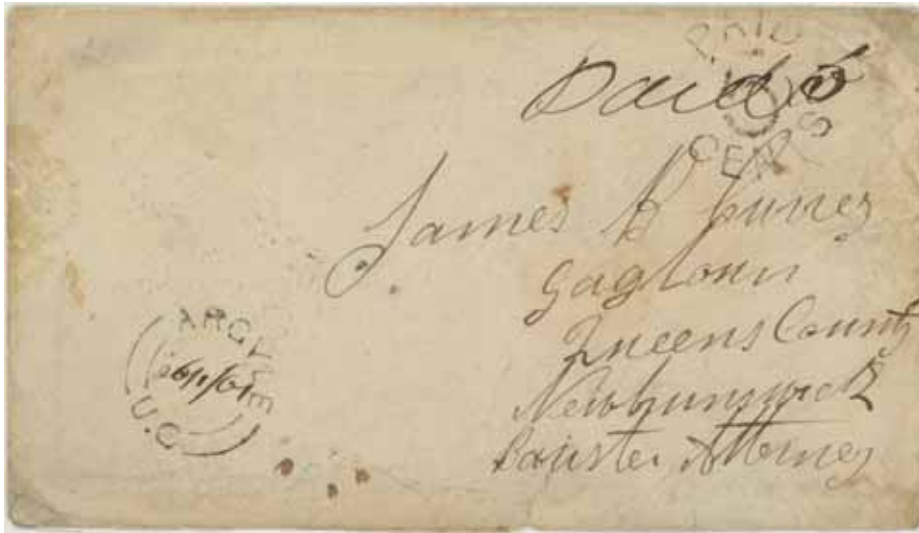 PAID
Paid 5
CENTS
James B Currey
Gagtown
Queens County
Newbrunswick
Barister Attorney
ARGYLE
26/1/61
U.C